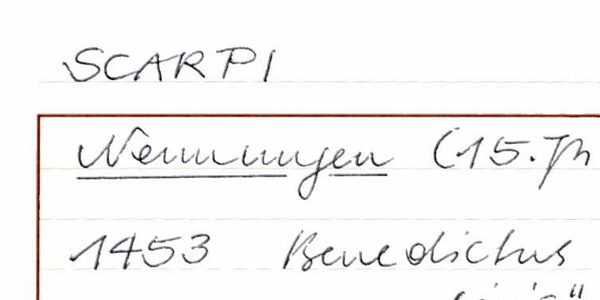 SCARPI
Nennungen (15. Jh
1453 Benedictus